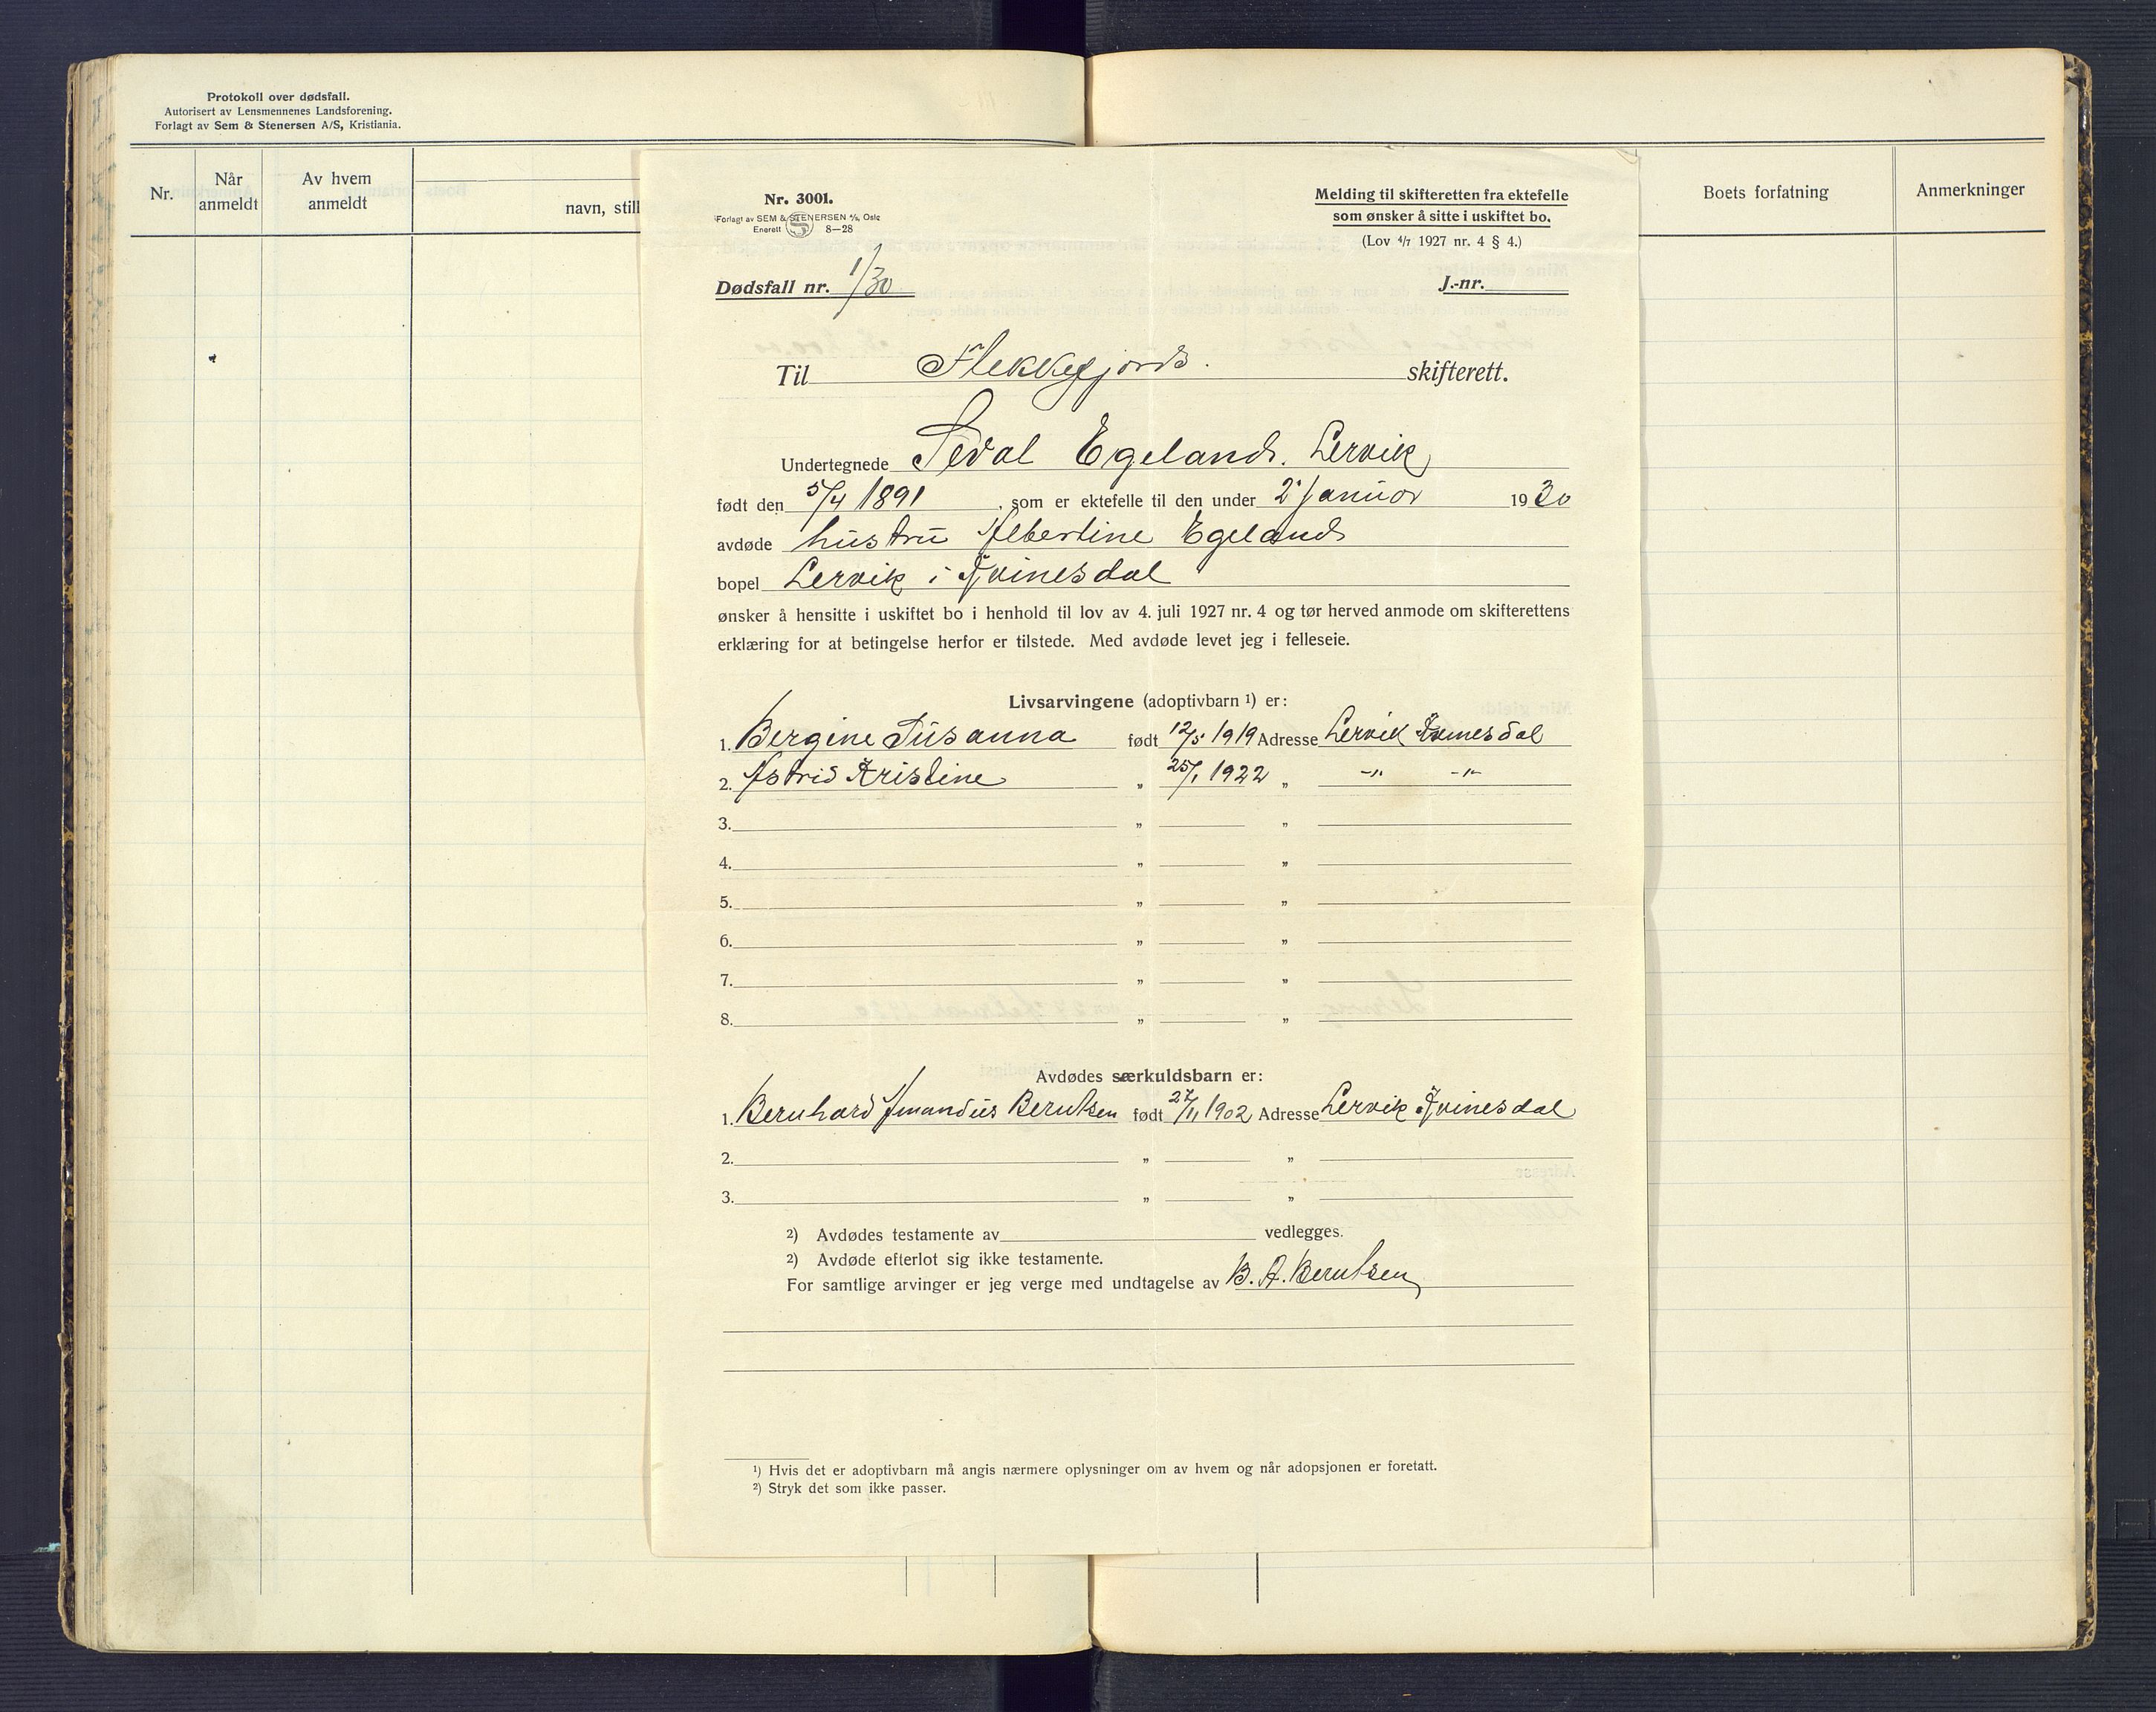 Protokoll over dødsfall.
Autorisert av Lensmennenes Landsforening.
Forlagt av Sem & Stenersen A/S, Kristiania.
Nr.
Når anmeldt
Av hvem anmeldt
navn, still
Boets forfatning
Anmerkninger
Nr. 3001.
Forlagt av SEM & STENERSEN A/S, Oslo
Enerett 8—28
Melding til skifteretten fra ektefelle
som ønsker å sitte i uskiftet bo.
(Lov 4/7 1927 nr. 4 § 4.)
Dødsfall nr. 1/30
J.-nr.
Til Flekkefjords. skifterett.
Undertegnede Sedal Egeland. Lervik
født den 5/4 1891, som er ektefelle til den under 2' Januar 1930
avdøde hustru Albertine Egeland
bopel Lervik i Kvinesdal
ønsker å hensitte i uskiftet bo i henhold til lov av 4. juli 1927 nr. 4 og tør herved anmode om skifterettens
erklæring for at betingelse herfor er tilstede. Med avdøde levet jeg i felleseie.
Livsarvingene (adoptivbarn ¹) er:
1. Bergine Susanna født 12/5 1919 Adresse Lervik Kvinesdal
2. Astrid Kristine „ 25/1 1922 „ -"- -"-
3. „ „
4. „ „
5. „ „
6. „ „
7. „ „
8. „ „
Avdødes særkuldsbarn er:
1. Bernhard Amandus Berntsen født 27/11 1902 Adresse Lervik Kvinesdal
2. „ „
3. „ „
²) Avdødes testamente av vedlegges.
²) Avdøde efterlot sig ikke testamente.
For samtlige arvinger er jeg verge med undtagelse av B. A. Berntsen
¹) Hvis det er adoptivbarn må angis nærmere oplysninger om av hvem og når adopsjonen er foretatt.
²) Stryk det som ikke passer.